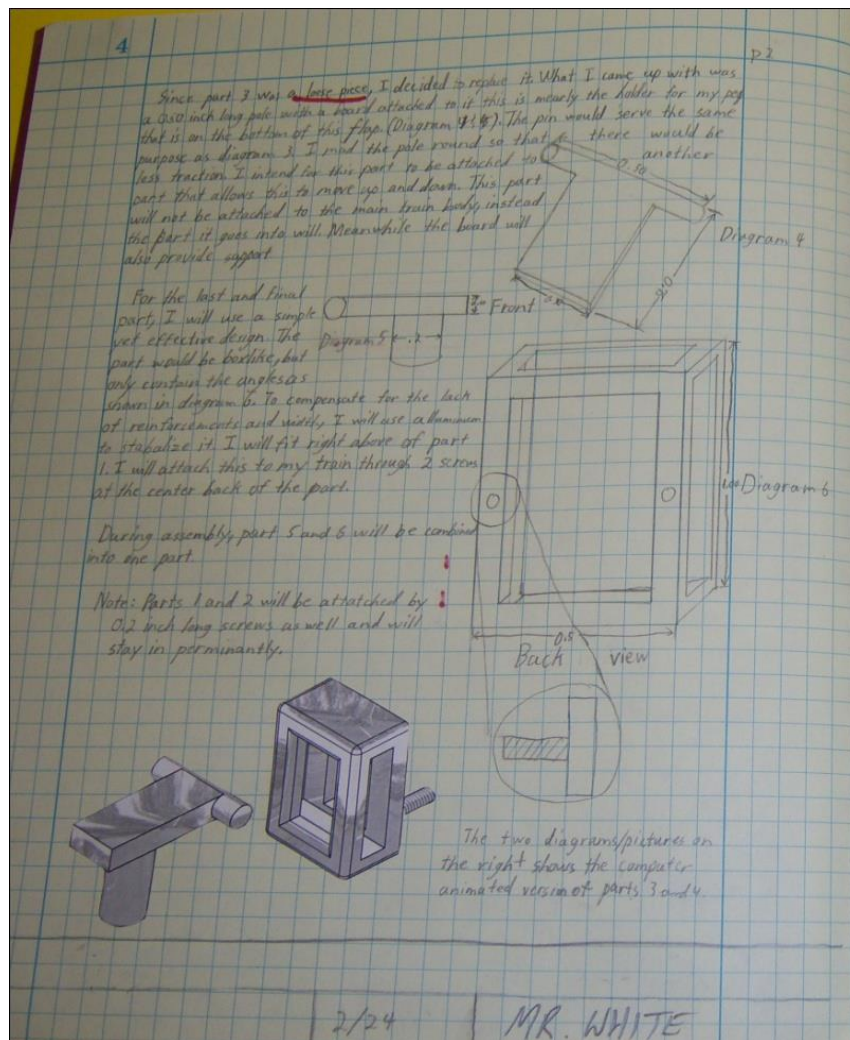 4
p 2
Since part 3 was a loose piece, I decided to replace it. What I came up with was
a 0.50 inch long pole with a board attached to it this is mearly the holder for my peg
that is on the bottom of this flap. (Diagram 4 5). The pin would serve the same
purpose as diagram 3. I mad the pole round so that there would be
less traction. I intend for this part to be attached to another
part that allows this to move up and down. This part
will not be attached to the main train body, instead
the part it goes into will. Meanwhile the board will
also provide support
0.50
Diagram 4
For the last and final
part, I will use a simple
yet effective design. The
part would be boxlike, but
only contain the angles as
shown in diagram 6. To compensate for the lack
of reinforcements and width, I will use alluminum
to stabalize it. I will fit right above of part
1. I will attach this to my train through 2 screws
at the center back of the part.
Front
Diagram 5
.2
1.00
Diagram 6
During assembly, part 5 and 6 will be combined
into one part.
Note: Parts 1 and 2 will be attatched by
0.2 inch long screws as well and will
stay in perminantly.
0.5
Back view
The two diagrams/pictures on
the right shows the computer
animated version of parts 3 and 4.
2/24
MR. WHITE